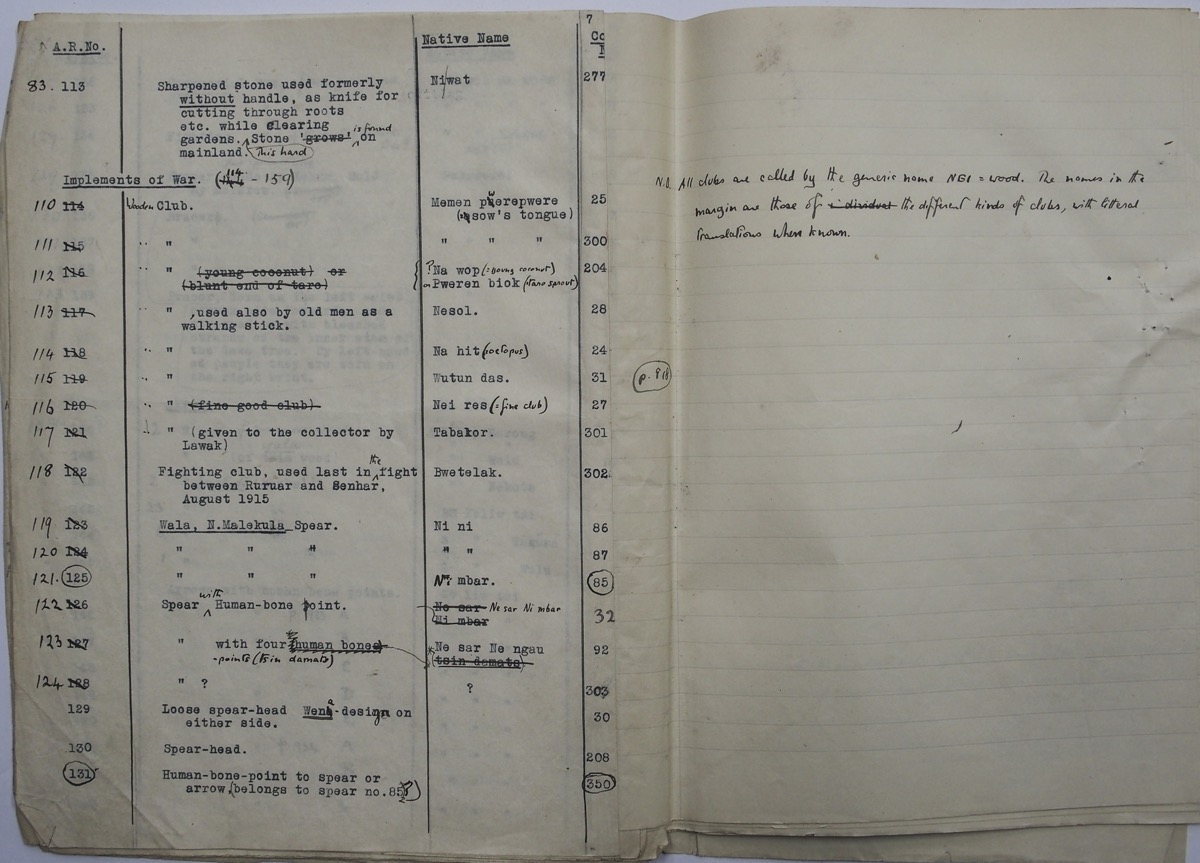 7
A.R.No. Native Name Co
83. 113 Sharpened stone used formerly Niwat 277
without handle, as knife for
cutting through roots
etc. while clearing
gardens. Stone 'grows' is found on
mainland. This hard
Implements of War. (114 - 159)
110 114 Wooden Club. Memen pwerepwere 25
(sow's tongue)
111 115 " " " " " 300
112 116 " " (young coconut) or ? Na wop (= young coconut) 204
(blunt end of taro) or Pweren biok (taro sprout)
113 117 " " ,used also by old men as a Nesol. 28
walking stick.
114 118 " " Na hit (octopus) 24
115 119 " " Wutun das. 31
116 120 " " (fine good club) Nei res (= fine club) 27
117 121 " " (given to the collector by Tabakor. 301
Lawak)
118 122 Fighting club, used last in the fight Bwetelak. 302
between Ruruar and Senhar,
August 1915
119 123 Wala, N.Malekula Spear. Ni ni 86
120 124 " " " " " 87
121. 125 " " " Ni mbar. 85
122 126 Spear with Human-bone point. Ne sar Ne sar Ni mbar 32
Ni mbar
123 127 " with four human bones Ne sar Ne ngau 92
-points (tsin damats) (tsin damats)
124 128 " ? ? 303
129 Loose spear-head Wena-design on 30
either side.
130 Spear-head. 208
131 Human-bone-point to spear or 350
arrow (belongs to spear no.85)
N.B. All clubs are called by the generic name NGI = wood. The names in the
margin are those of individual the different kinds of clubs, with litteral
translations where known.